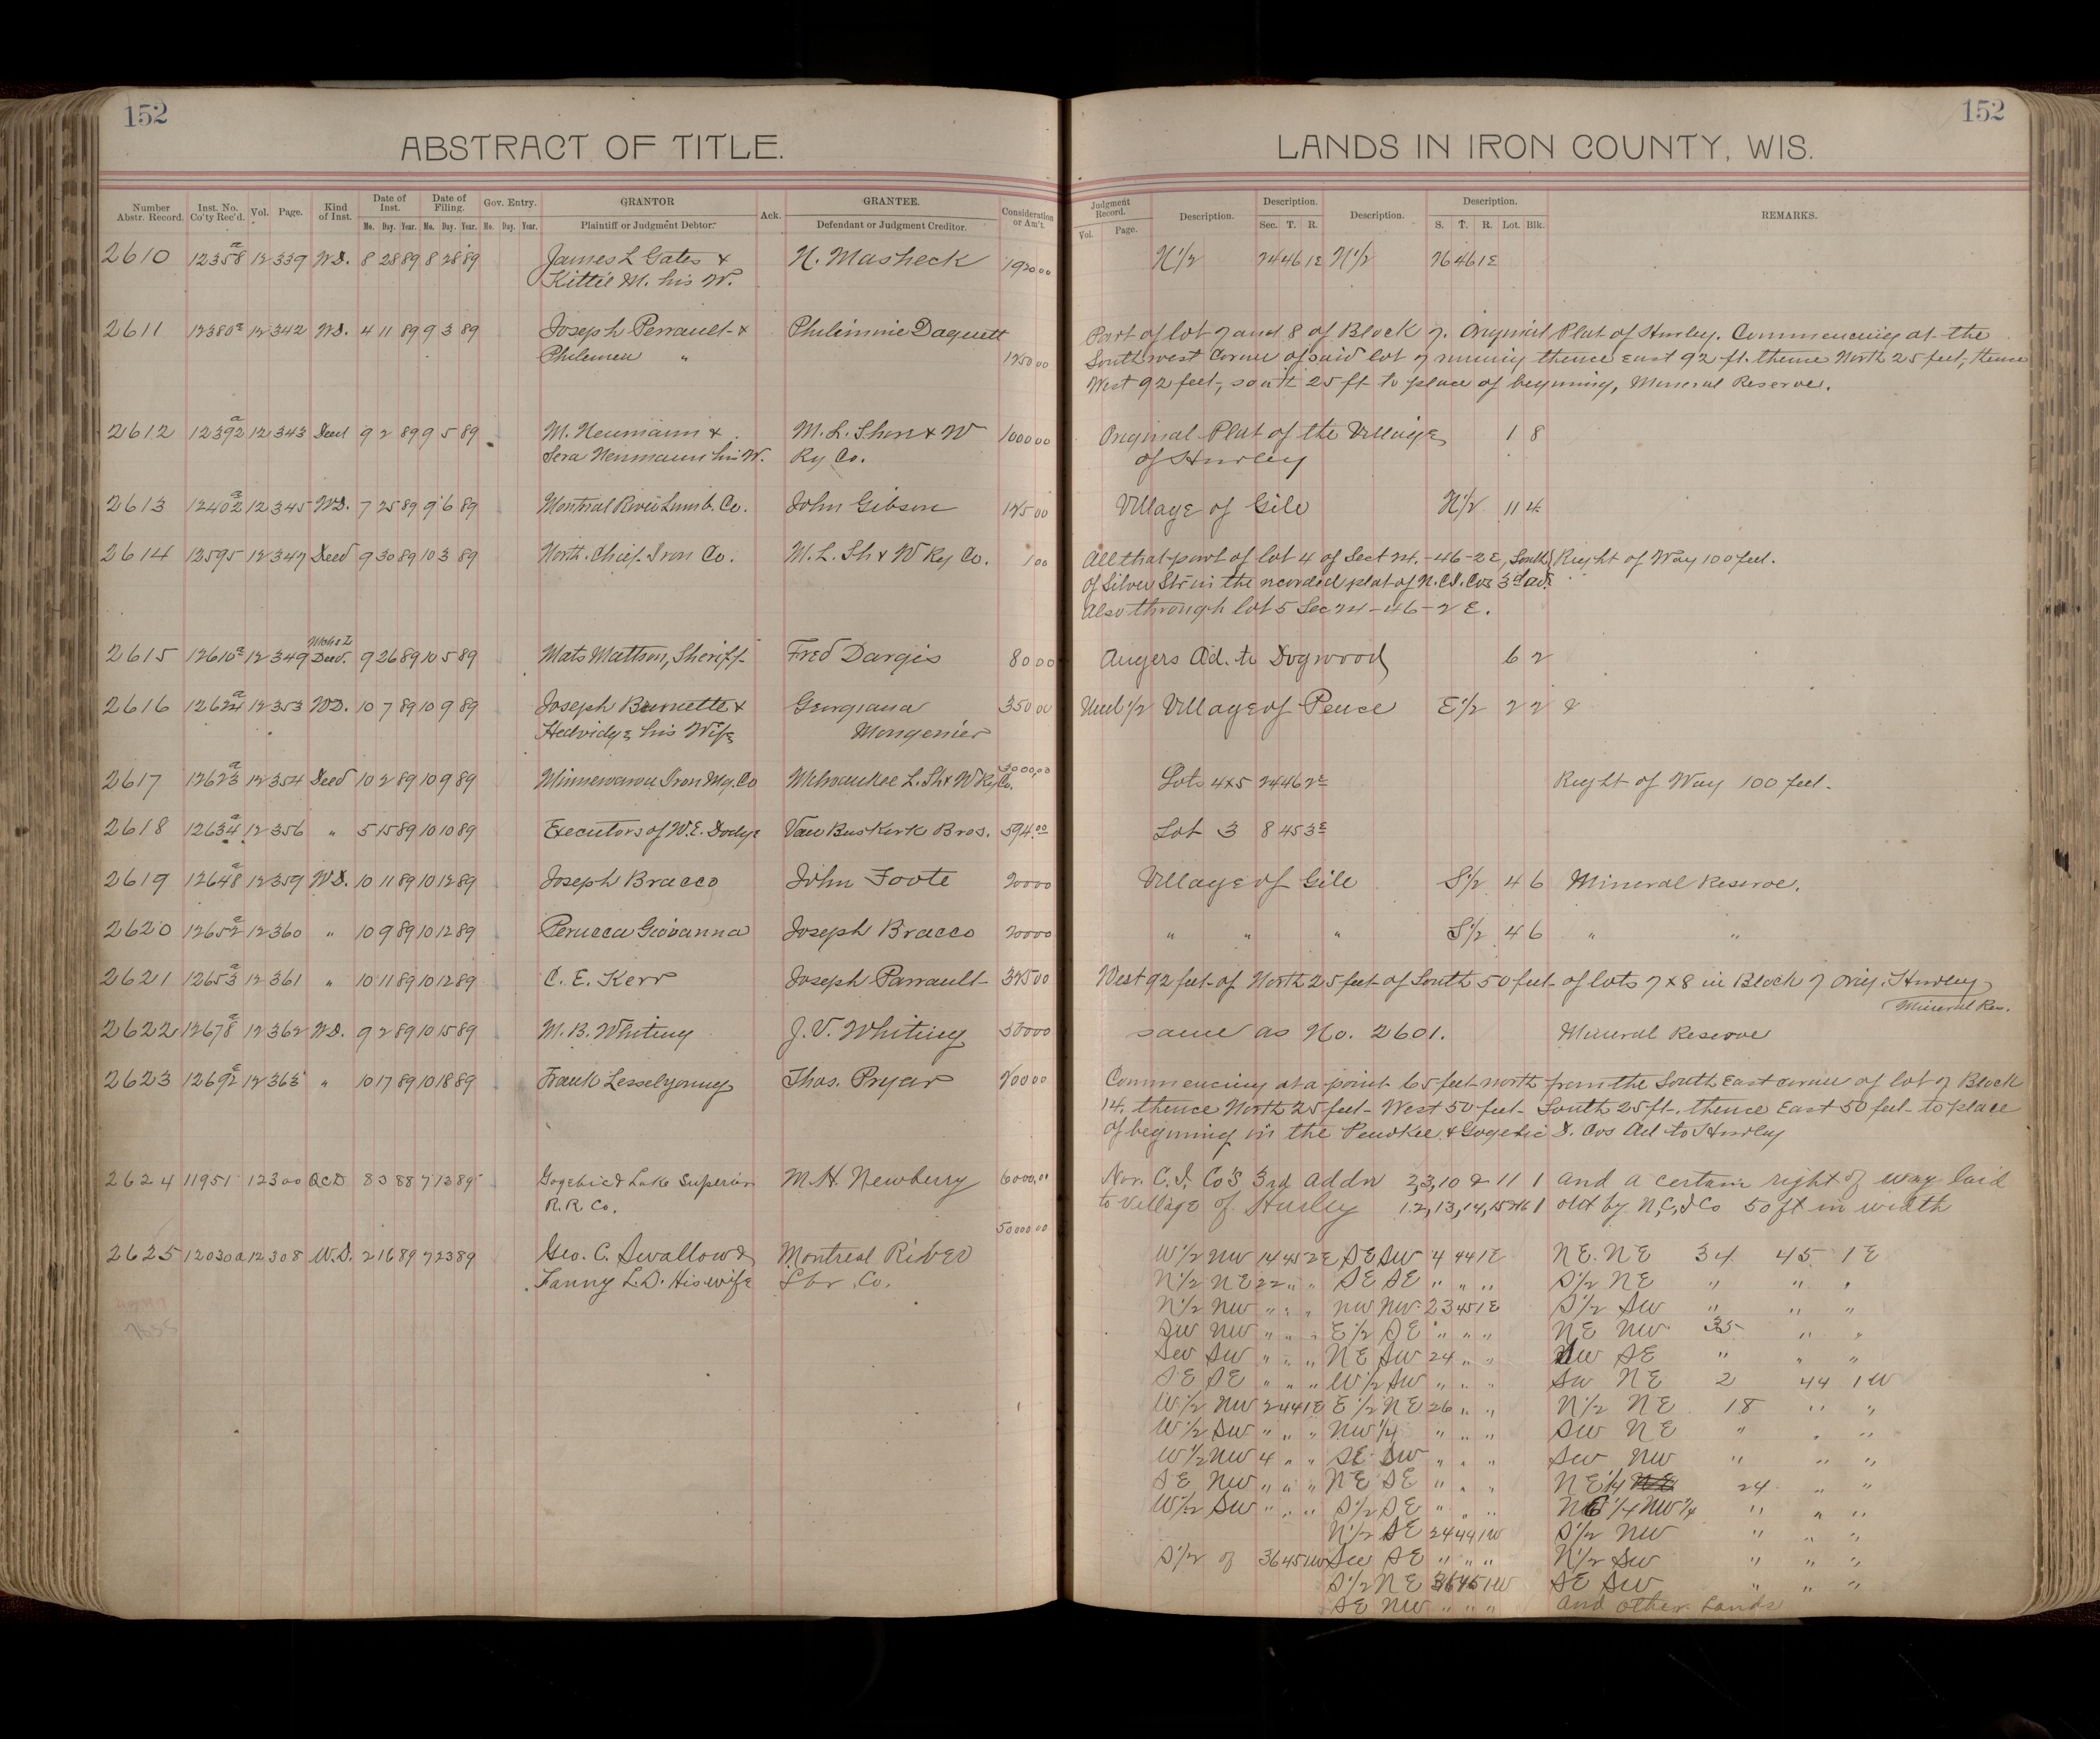 152
152
ABSTRACT OF TITLE.
LANDS IN IRON COUNTY, WIS.
Number Abstr. Record. Inst. No. Co'ty Rec'd. Vol. Page. Kind of Inst. Date of Inst. Date of Filing. Gov. Entry. GRANTOR Ack. GRANTEE. Consideration or Am't. Judgment Record. Description. Description. Description. Description. REMARKS.
Mo. Day. Year. Mo. Day. Year. Mo. Day. Year. Plaintiff or Judgment Debtor. Defendant or Judgment Creditor. Vol. Page. Sec. T. R. S. T. R. Lot. Blk.
2610 12358a 12 339 W.D. 8 28 89 8 28 89 James L Gates & N. Masheck 1920 00 N 1/2 24 46 1E N 1/2 26 46 1E
Kittie M. his W.
2611 12380a 12 342 W.D. 4 11 89 9 3 89 Joseph Perrault & Philimnie Daquett 1250 00 Part of lot 7 and 8 of Block 7. Original Plat of Hurley. Commencing at the
Philemen " Southwest Corner of said lot 7 running thence East 92 ft. thence North 25 feet, thence
West 92 feet, south 25 ft to place of beginning, Mineral Reserve.
2612 12392a 12 343 Deed 9 2 89 9 5 89 M. Neumann & M. L. Shore & W 1000 00 Original Plat of the Village 1 8
Sera Neumann his W. Ry Co. of Hurley
2613 12402a 12 345 W.D. 7 25 89 9 6 89 Montreal River Lumb. Co. John Gibson 125 00 Village of Gile N 1/2 11 4
2614 12595 12 347 Deed 9 30 89 10 3 89 North. Chief. Iron Co. M. L. Sh & W Ry Co. 1 00 All that part of lot 4 of Sect 24.-46-2E, South Right of Way 100 feet.
of Silver St. in the recorded plat of N.C.I. Cos 3rd ad.
Also through lot 5 Sec 24-46-2E.
2615 12610a 12 349 Deed. 9 26 89 10 5 89 Mats Mattson, Sheriff Fred Dargis 80 00 Angers Ad. to Dogwood 6 2
2616 12624a 12 353 W.D. 10 7 89 10 9 89 Joseph Burnette & Georgiana 350 00 Und 1/2 Village of Pence E 1/2 22 8
Hedvidge his Wife Mongenier
2617 12623a 12 354 Deed 10 2 89 10 9 89 Minnewawa Iron Mg. Co Milwaukee L. Sh & W Ry Co. 3000,00 Lots 4 & 5 24 46 2E Right of Way 100 feet.
2618 12634a 12 356 " 5 15 89 10 10 89 Executors of W. E. Dodge Van Buskirk Bros. 594.00 Lot 3 8 45 3E
2619 12648a 12 359 W.D. 10 11 89 10 12 89 Joseph Bracco John Foote 200 00 Village of Gile S 1/2 4 6 Mineral Reserve.
2620 12652a 12 360 " 10 9 89 10 12 89 Perucca Giovanna Joseph Bracco 200 00 " " " S 1/2 4 6 " "
2621 12653a 12 361 " 10 11 89 10 12 89 C. E. Kerr Joseph Parrault 325 00 West 92 feet of North 25 feet of South 50 feet of lots 7 & 8 in Block 7 Orig. Hurley
Mineral Res.
2622 12678a 12 362 W.D. 9 2 89 10 15 89 M. B. Whiting J. V. Whiting 500 00 same as No. 2601. Mineral Reserve
2623 12692a 12 363 " 10 17 89 10 18 89 Frank Lesselyoung Thos. Pryor 200 00 Commencing at a point 65 feet north from the South East corner of lot 7 Block
14, thence North 25 feet West 50 feet South 25 ft. thence East 50 feet to place
of beginning in the Pewkee & Gogebic I. Cos Ad to Hurley
2624 11951 12 300 QCD 8 3 88 7 12 89 Gogebic & Lake Superior M. H. Newberry 6000,00 Nor. C. I. Co's 3rd addn 2,3,10 & 11 1 and a certain right of way laid
R. R. Co. to Village of Hurley 12,13,14,15&16 1 out by N.C.I. Co 50 ft in width
50000 00
2625 12030a 12 308 W.D. 2 16 89 7 23 89 Geo. C. Swallow & Montreal River W 1/2 NW 14 45 2E SE SW 4 44 1E NE. NE 34 45 1E
Fanny L.D. His wife Lbr. Co. N 1/2 NE 22 " " SE SE " " " S 1/2 NE " " "
N 1/2 NW " " " NW NW 23 45 1E S 1/2 SW " " "
SW NW " " " E 1/2 SE " " " NE NW 35 " "
SW SW " " " NE SW 24 " " SW SE " " "
SE SE " " " W 1/2 SW " " " SW NE 2 44 1W
W 1/2 NW 2 44 1E E 1/2 NE 26 " " N 1/2 NE 18 " "
W 1/2 SW " " " NW 1/4 " " " SW NE " " "
W 1/2 NW 4 " " SE SW " " " SW NW " " "
SE NW " " " NE SE " " " NE 1/4 24 " "
W 1/2 SW " " " S 1/2 SE " " " NE 1/4 NW 1/4 " " "
N 1/2 SE 24 44 1W S 1/2 NW " " "
S 1/2 of 36 45 1W SW SE " " " N 1/2 SW " " "
S 1/2 NE 36 45 1W SE SW " " "
SE NW " " " and other Lands